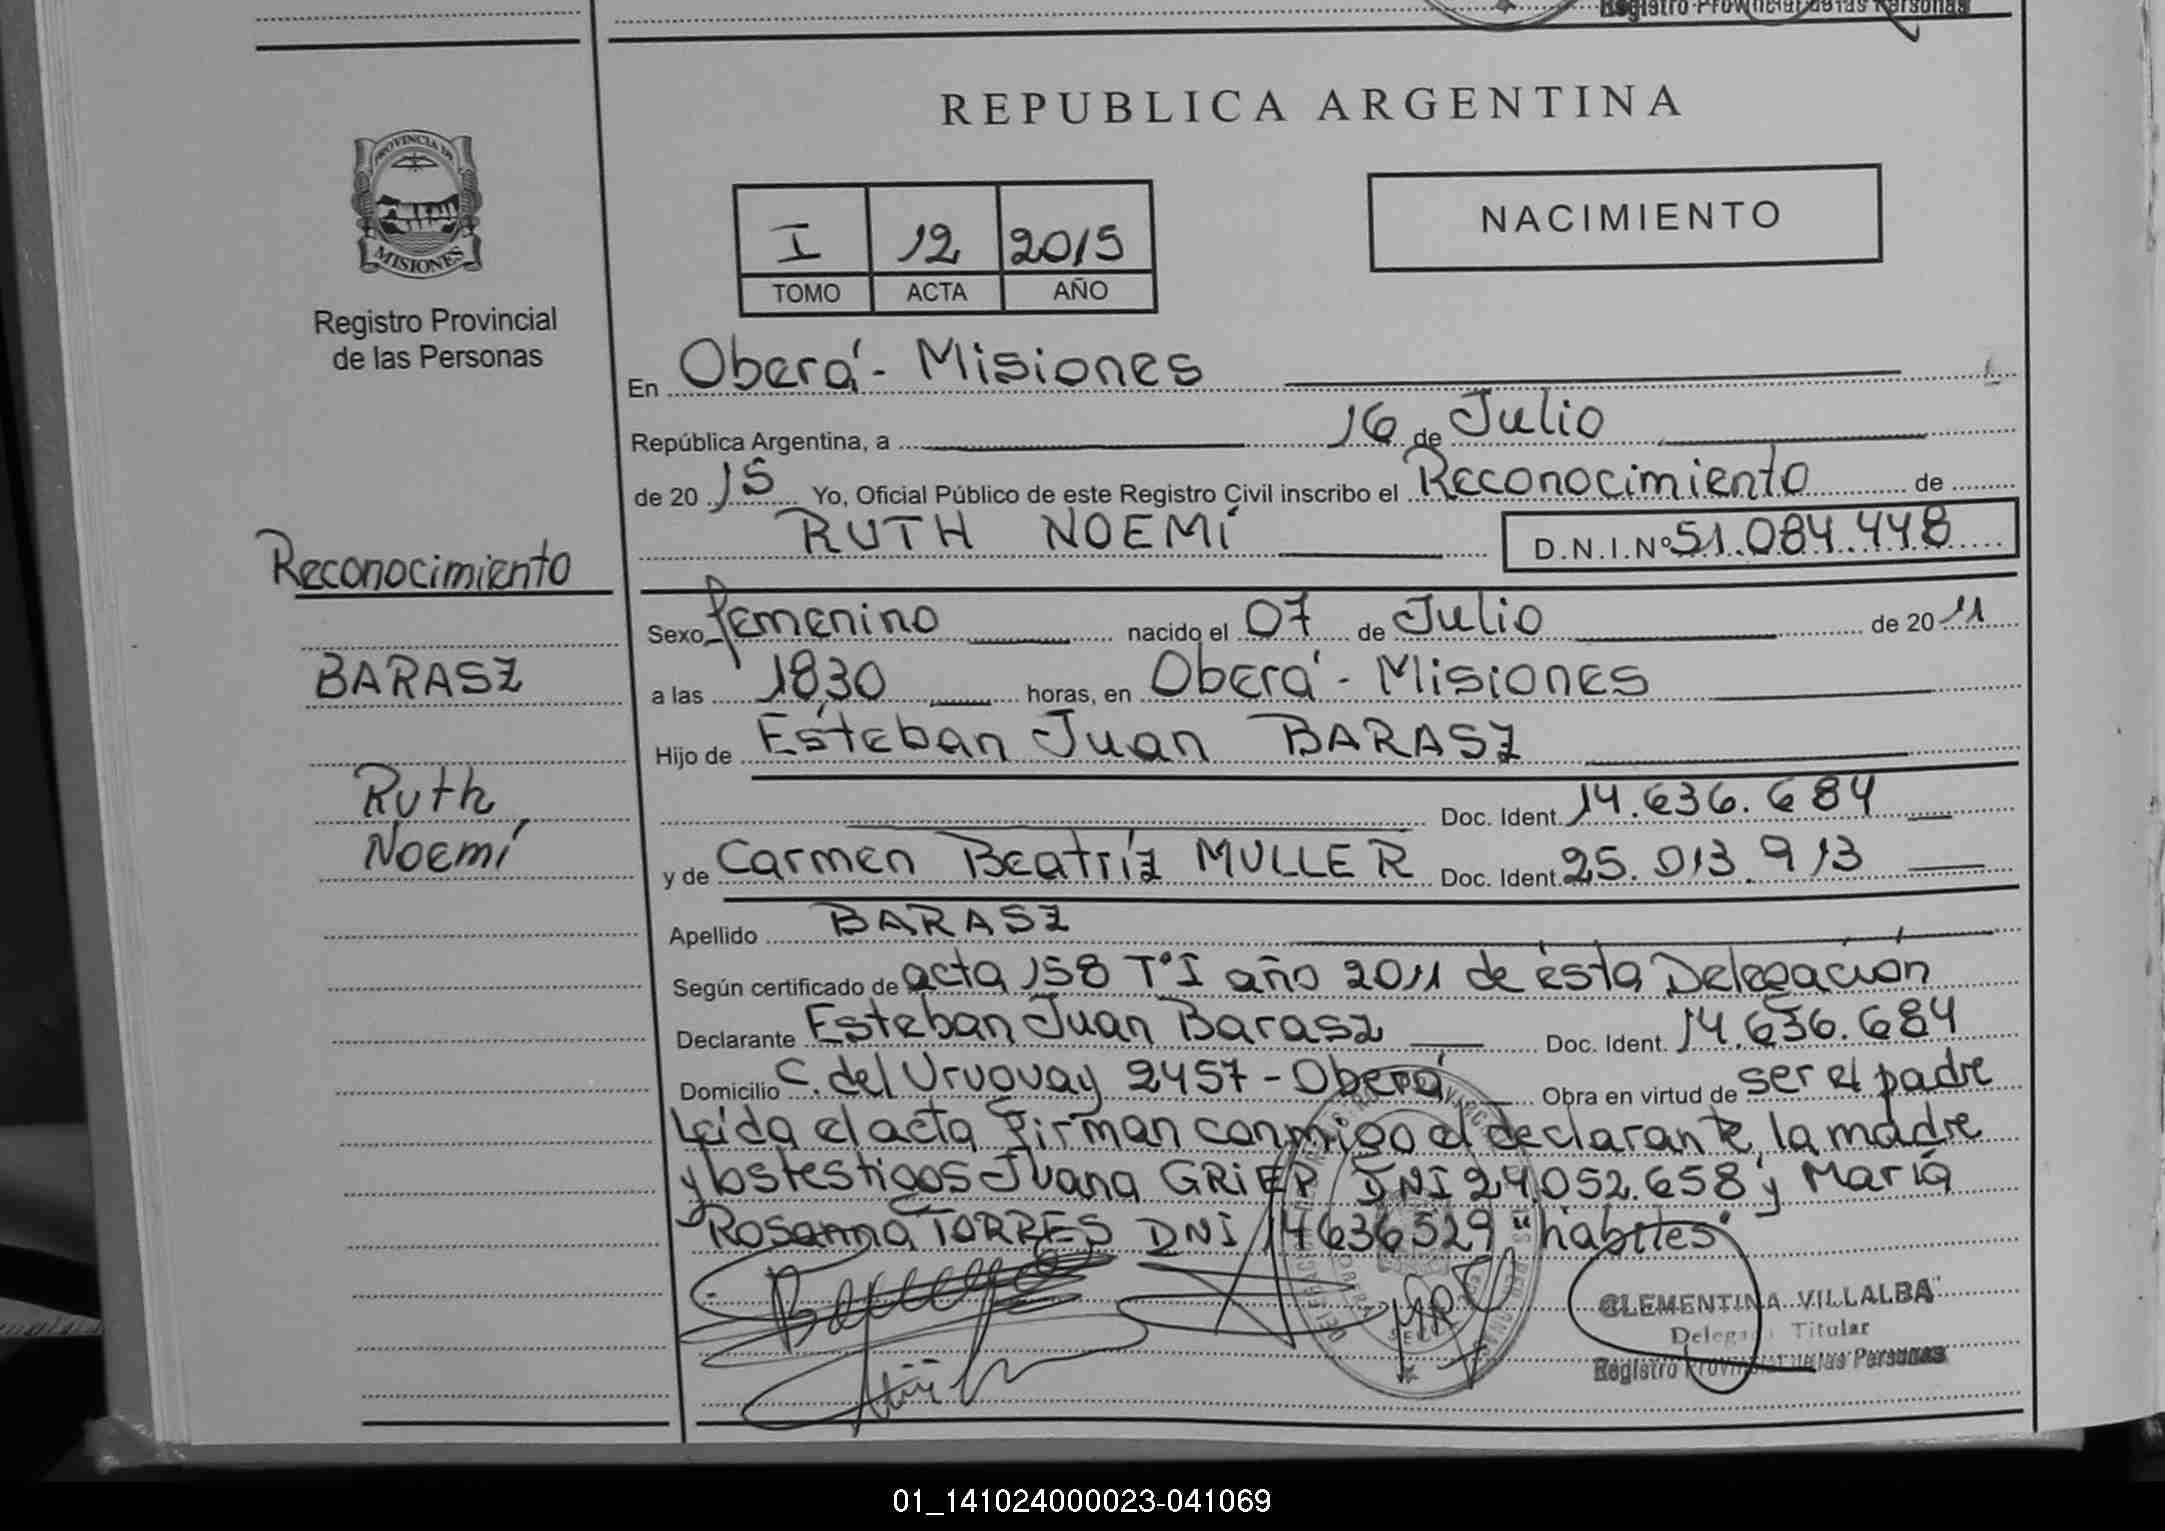 Registro Provincial de las Personas
REPUBLICA ARGENTINA
PROVINCIA DE
MISIONES
Registro Provincial
de las Personas
I 12 2015
TOMO ACTA AÑO
NACIMIENTO
En Oberá - Misiones
República Argentina, a 16 de Julio
de 20 15 Yo, Oficial Público de este Registro Civil inscribo el Reconocimiento de
RUTH NOEMÍ D.N.I.Nº 51.084.448
Reconocimiento
BARASZ
Ruth
Noemí
Sexo femenino nacido el 07 de Julio de 20 11
a las 18,30 horas, en Oberá - Misiones
Hijo de Esteban Juan BARASZ
Doc. Ident. 14.636.684
y de Carmen Beatríz MULLER Doc. Ident. 25.013.913
Apellido BARASZ
Según certificado de acta 158 Tº I año 2011 de ésta Delegación
Declarante Esteban Juan Barasz Doc. Ident. 14.636.684
Domicilio C. del Uruguay 2457 - Oberá Obra en virtud de ser el padre
Leida el acta firman conmigo el declarante, la madre
y los testigos Juana GRIEP DNI 24.052.658 y María
Rosanna TORRES DNI 14636529 "habiles"
CLEMENTINA VILLALBA
Delegada Titular
Registro Provincial de las Personas
01_141024000023-041069